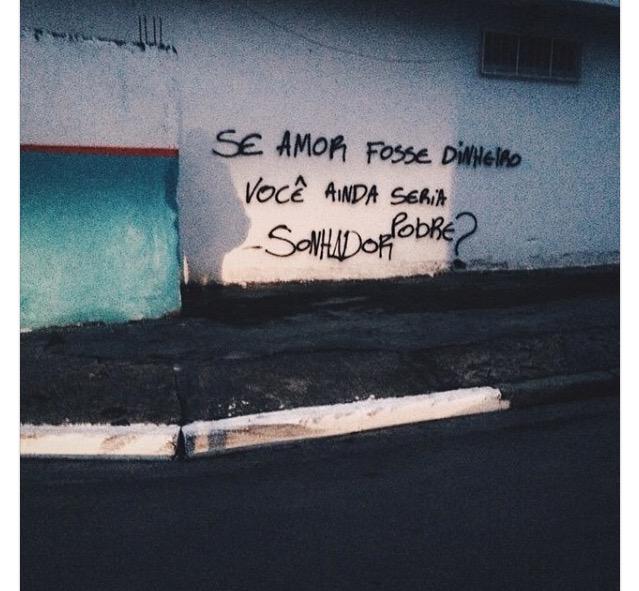 SE AMOR FOSSE DINHEIRO
VOCÊ AINDA SERIA
POBRE?
-SONHADOR